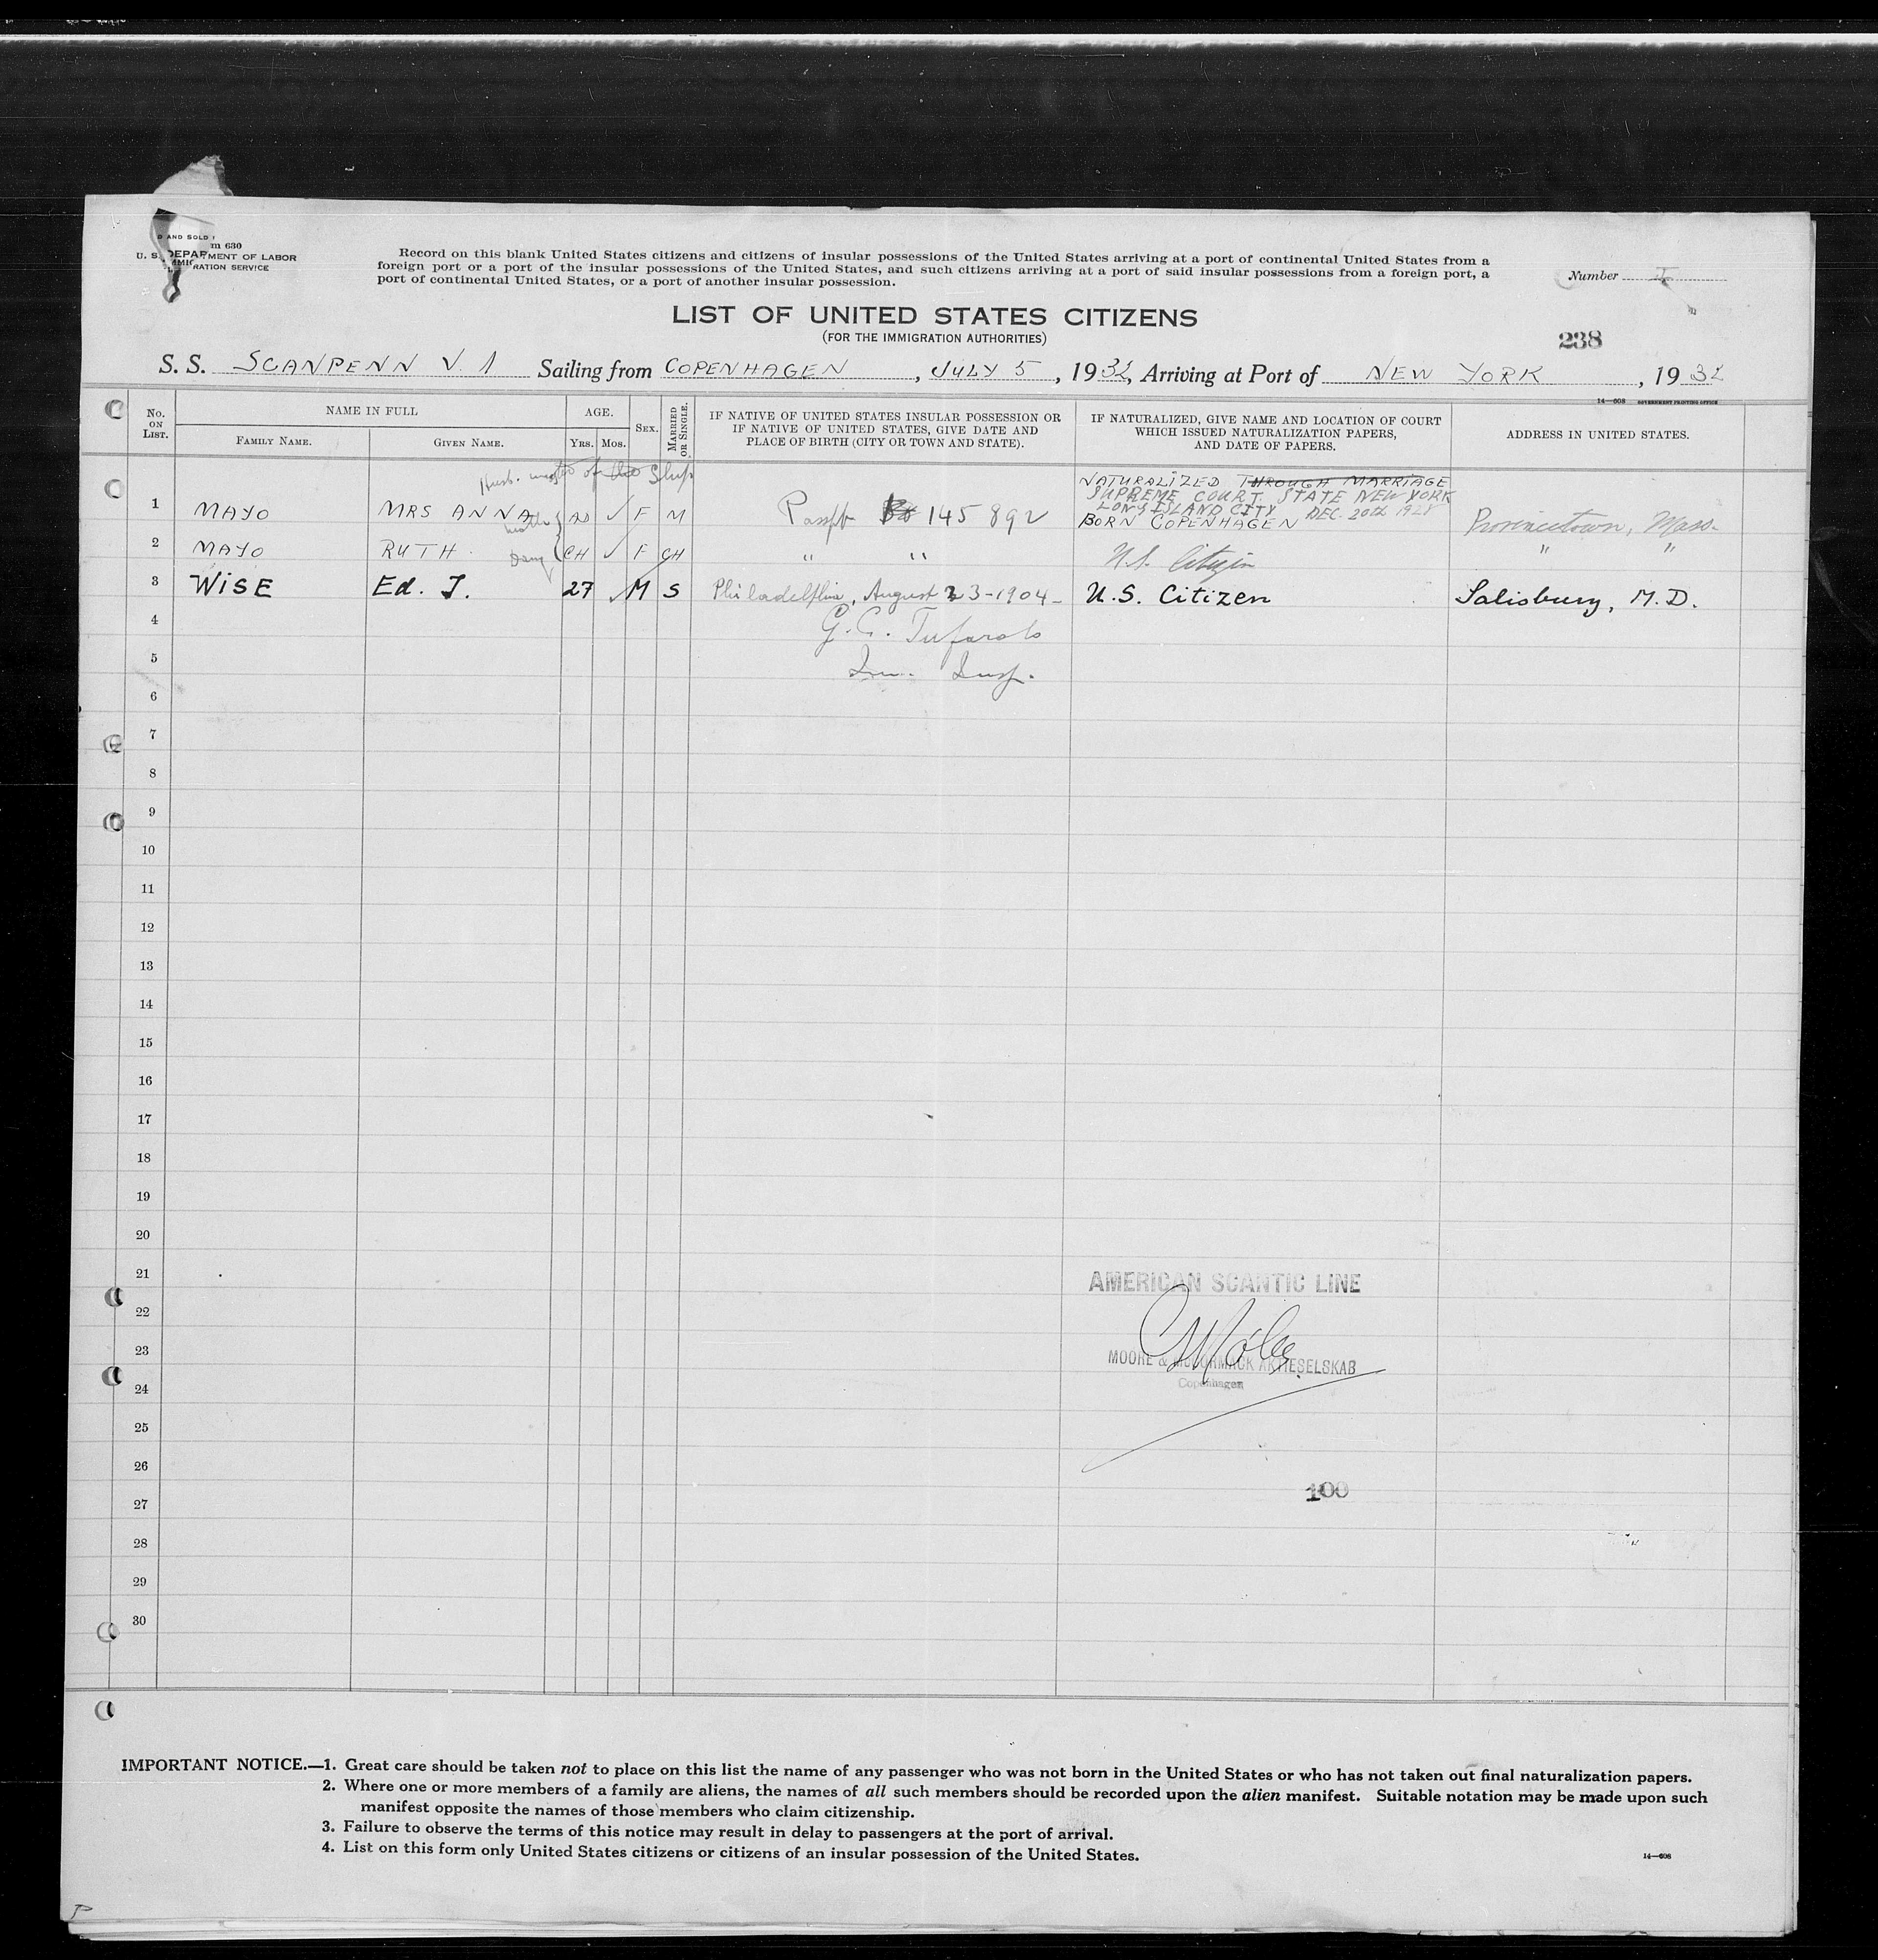 D AND SOLD
m 630
U. S. DEPARTMENT OF LABOR
IMMIGRATION SERVICE
Record on this blank United States citizens and citizens of insular possessions of the United States arriving at a port of continental United States from a
foreign port or a port of the insular possessions of the United States, and such citizens arriving at a port of said insular possessions from a foreign port, a
port of continental United States, or a port of another insular possession.
Number I
LIST OF UNITED STATES CITIZENS
(FOR THE IMMIGRATION AUTHORITIES)
238
S. S. SCANPENN V. 1 Sailing from COPENHAGEN, JULY 5, 1932, Arriving at Port of NEW YORK, 1932
14—608 GOVERNMENT PRINTING OFFICE
No. ON LIST. NAME IN FULL FAMILY NAME. GIVEN NAME. AGE. YRS. MOS. SEX. MARRIED OR SINGLE. IF NATIVE OF UNITED STATES INSULAR POSSESSION OR IF NATIVE OF UNITED STATES, GIVE DATE AND PLACE OF BIRTH (CITY OR TOWN AND STATE). IF NATURALIZED, GIVE NAME AND LOCATION OF COURT WHICH ISSUED NATURALIZATION PAPERS, AND DATE OF PAPERS. ADDRESS IN UNITED STATES.
Husb. master of the Ship
NATURALIZED THROUGH MARRIAGE
SUPREME COURT. STATE NEW YORK
LONG ISLAND CITY DEC. 20th 1928
1 MAYO MRS ANNA AD ✓ F M Passpt 145892 BORN COPENHAGEN Provincetown, Mass.
moth
2 MAYO RUTH. CH ✓ F CH " " U.S. Citizen " "
Daug
3 WISE Ed. J. 27 ✓ M S Philadelphia, August 23-1904- U.S. Citizen Salisbury, M.D.
4 G.C. Tufarolo
5 Im. Insp.
6
7
8
9
10
11
12
13
14
15
16
17
18
19
20
21
AMERICAN SCANTIC LINE
22
23
MOORE & McCORMACK AKTIESELSKAB
Copenhagen
24
25
26
27
100
28
29
30
IMPORTANT NOTICE.—1. Great care should be taken not to place on this list the name of any passenger who was not born in the United States or who has not taken out final naturalization papers.
2. Where one or more members of a family are aliens, the names of all such members should be recorded upon the alien manifest. Suitable notation may be made upon such
manifest opposite the names of those members who claim citizenship.
3. Failure to observe the terms of this notice may result in delay to passengers at the port of arrival.
4. List on this form only United States citizens or citizens of an insular possession of the United States.
14—608
P